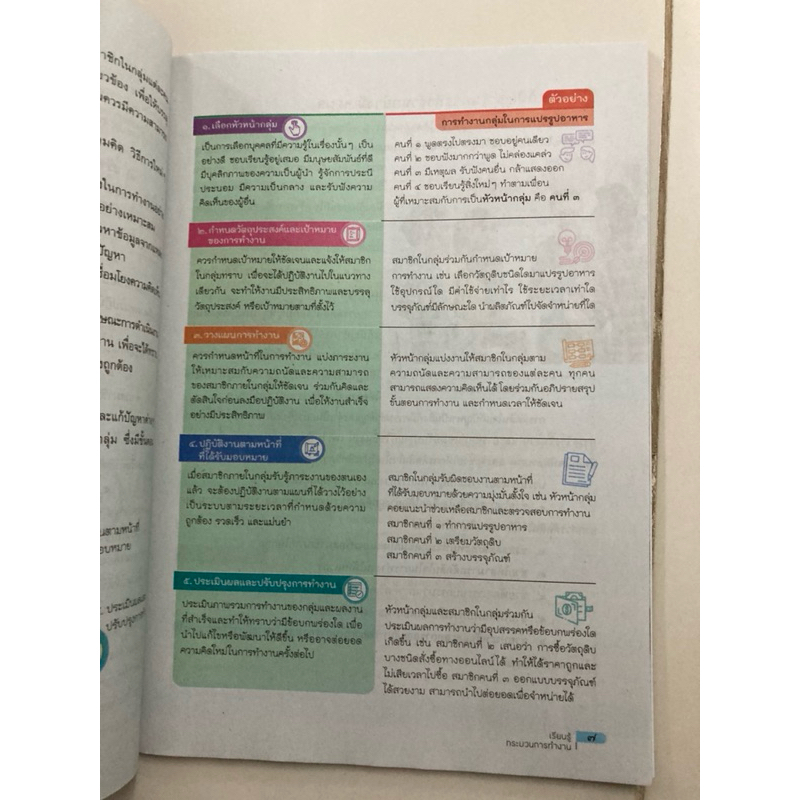 ตัวอย่าง
การทำงานกลุ่มในการแปรรูปอาหาร
๑. เลือกหัวหน้ากลุ่ม
เป็นการเลือกบุคคลที่มีความรู้ในเรื่องนั้นๆ เป็น
อย่างดี ชอบเรียนรู้อยู่เสมอ มีมนุษยสัมพันธ์ที่ดี
มีบุคลิกภาพของความเป็นผู้นำ รู้จักการประนี
ประนอม มีความเป็นกลาง และรับฟังความ
คิดเห็นของผู้อื่น
คนที่ ๑ พูดตรงไปตรงมา ชอบอยู่คนเดียว
คนที่ ๒ ชอบฟังมากกว่าพูด ไม่คล่องแคล่ว
คนที่ ๓ มีเหตุผล รับฟังคนอื่น กล้าแสดงออก
คนที่ ๔ ชอบเรียนรู้สิ่งใหม่ๆ ทำตามเพื่อน
ผู้ที่เหมาะสมกับการเป็นหัวหน้ากลุ่ม คือ คนที่ ๓
๒. กำหนดวัตถุประสงค์และเป้าหมาย
ของการทำงาน
ควรกำหนดเป้าหมายให้ชัดเจนและแจ้งให้สมาชิก
ในกลุ่มทราบ เพื่อจะได้ปฏิบัติงานไปในแนวทาง
เดียวกัน จะทำให้งานมีประสิทธิภาพและบรรลุ
วัตถุประสงค์ หรือเป้าหมายตามที่ตั้งไว้
สมาชิกในกลุ่มร่วมกันกำหนดเป้าหมาย
การทำงาน เช่น เลือกวัตถุดิบชนิดใดมาแปรรูปอาหาร
ใช้อุปกรณ์ใด มีค่าใช้จ่ายเท่าไร ใช้ระยะเวลาเท่าใด
บรรจุภัณฑ์มีลักษณะใด นำผลิตภัณฑ์ไปจัดจำหน่ายที่ใด
๓. วางแผนการทำงาน
ควรกำหนดหน้าที่ในการทำงาน แบ่งภาระงาน
ให้เหมาะสมกับความถนัดและความสามารถ
ของสมาชิกภายในกลุ่มให้ชัดเจน ร่วมกันคิดและ
ตัดสินใจก่อนลงมือปฏิบัติงาน เพื่อให้งานสำเร็จ
อย่างมีประสิทธิภาพ
หัวหน้ากลุ่มแบ่งงานให้สมาชิกในกลุ่มตาม
ความถนัดและความสามารถของแต่ละคน ทุกคน
สามารถแสดงความคิดเห็นได้ โดยร่วมกันอภิปรายสรุป
ขั้นตอนการทำงาน และกำหนดเวลาให้ชัดเจน
๔. ปฏิบัติงานตามหน้าที่
ที่ได้รับมอบหมาย
เมื่อสมาชิกภายในกลุ่มรับรู้ภาระงานของตนเอง
แล้ว จะต้องปฏิบัติงานตามแผนที่ได้วางไว้อย่าง
เป็นระบบตามระยะเวลาที่กำหนดด้วยความ
ถูกต้อง รวดเร็ว และแม่นยำ
สมาชิกในกลุ่มรับผิดชอบงานตามหน้าที่
ที่ได้รับมอบหมายด้วยความมุ่งมั่นตั้งใจ เช่น หัวหน้ากลุ่ม
คอยแนะนำช่วยเหลือสมาชิกและตรวจสอบการทำงาน
สมาชิกคนที่ ๑ ทำการแปรรูปอาหาร
สมาชิกคนที่ ๒ เตรียมวัตถุดิบ
สมาชิกคนที่ ๓ สร้างบรรจุภัณฑ์
๕. ประเมินผลและปรับปรุงการทำงาน
ประเมินภาพรวมการทำงานของกลุ่มและผลงาน
ที่สำเร็จและทำให้ทราบว่ามีข้อบกพร่องใด เพื่อ
นำไปแก้ไขหรือพัฒนาให้ดีขึ้น หรืออาจต่อยอด
ความคิดใหม่ในการทำงานครั้งต่อไป
หัวหน้ากลุ่มและสมาชิกในกลุ่มร่วมกัน
ประเมินผลการทำงานว่ามีอุปสรรคหรือข้อบกพร่องใด
เกิดขึ้น เช่น สมาชิกคนที่ ๒ เสนอว่า การซื้อวัตถุดิบ
บางชนิดสั่งซื้อทางออนไลน์ได้ ทำให้ได้ราคาถูกและ
ไม่เสียเวลาไปซื้อ สมาชิกคนที่ ๓ ออกแบบบรรจุภัณฑ์
ได้สวยงาม สามารถนำไปต่อยอดเพื่อจำหน่ายได้
เรียนรู้
กระบวนการทำงาน
๗